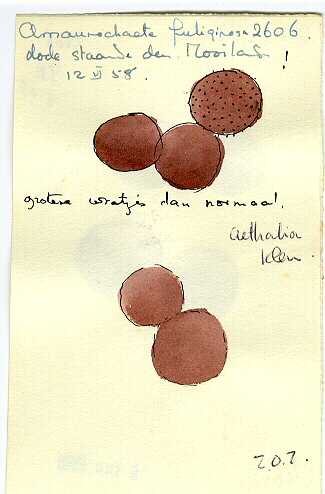 Amaurochaete fuliginosa 2606.
dode staande den. Mooiland !
12 VI 58.
grotere wratjes dan normaal.
aethalia
klein.
707.